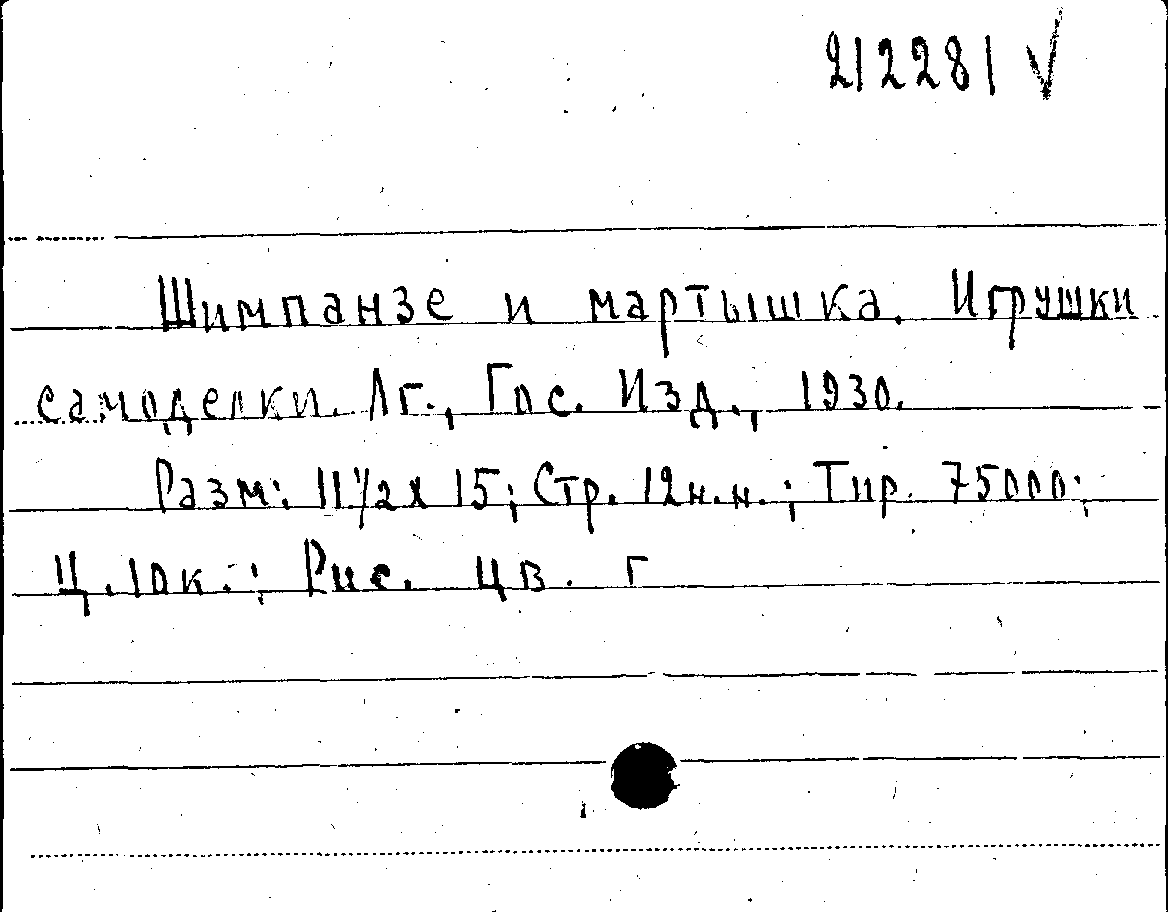 212281 √
Шимпанзе и мартышка. Игрушки
самоделки. Лг., Гос. Изд., 1930.
Разм: 11½ x 15; Стр. 12н.н.; Тир. 75000;
Ц. 10к.; Рис. цв. г